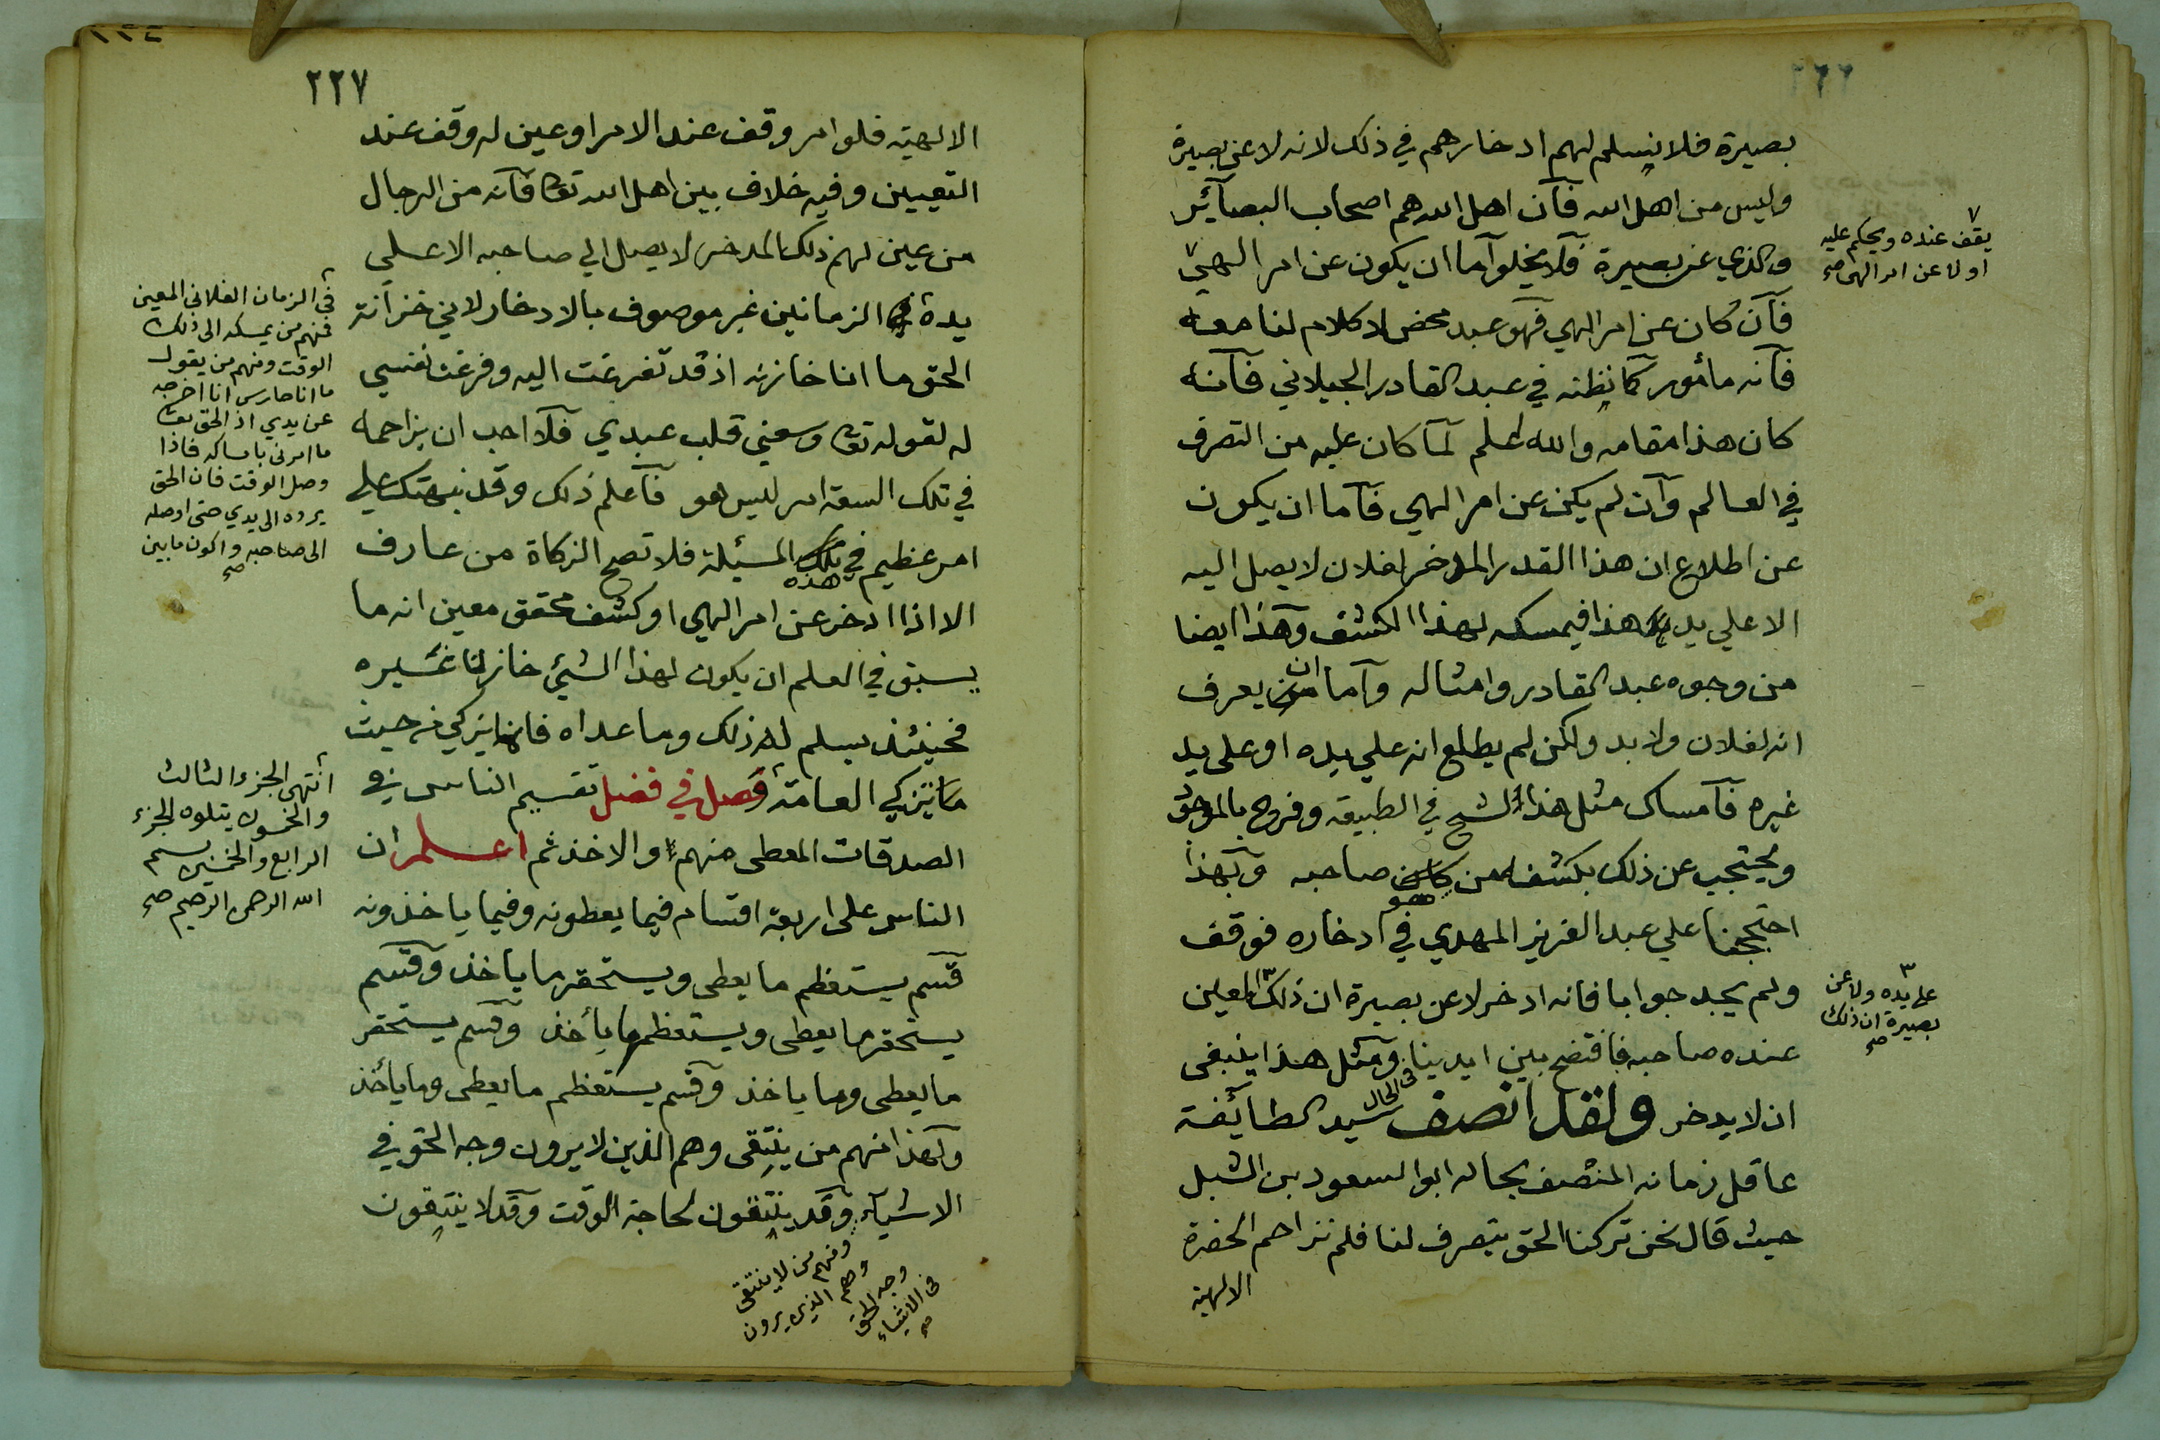 ٢٢٦
بصيرة فلا يسلم لهم ادخارهم في ذلك لانه لا عن بصيرة
وليس من اهل الله فآن اهل الله هم اصحاب البصآئر
والذي عن بصيرة فلا يخلوا آما ان يكون عن امر الهي
فآن كان عن امر الهي فهو عبد محض لا كلام لنا معه
فآنه مأمور كما نظنه في عبد القادر الجيلاني فآنه
كان هذا مقامه والله اعلم لما كان عليه من التصرف
في العالم وآن لم يكن عن امر الهي فآما ان يكون
عن اطلاع ان هذا القدر المدخر لفلان لا يصل اليه
الا علي يد هذا فيمسكه لهذا الكشف وهذا ايضا
من وجوه عبد القادر وامثاله وآما ان يعرف
انه لفلان ولا بد ولكن لم يطلع انه علي يده او على يد
غيره فآمساك مثل هذا لشح في الطبيعة وفرح بالموجود
ويحتجب عن ذلك بكشفه من هو صاحبه وبهذا
احتججنا علي عبد العزيز المهدي في ادخاره فوقف
ولم يجد جوابا فانه ادخر لا عن بصيرة ان ذلك المعين
عنده صاحبه فافتضح بين ايدينا في الحال ومثل هذا ينبغي
ان لا يدخر ولقد انصف سيد الطائفة
عاقل زمانه المنصف بحاله ابو السعود بن الشبل
حيث قال نحن تركنا الحق يتصرف لنا فلم نزاحم الحضرة
الالهية
يقف عنده ويحكم عليه
او لا عن امر الهي صح
على يده ولا عن
بصيرة ان ذلك
صح
٢٢٧
الالهية فلو امر وقف عند الامر او عين له وقف عند
التعيين وفيه خلاف بين اهل الله تعا فآنه من الرجال
من عين لهم ذلك المدخر لا يصل الي صاحبه الا علي
يده الزمانين غير موصوف بالادخار لاني خزانة
الحق ما انا خازنه اذ قد تفرغت اليه وفرغت نفسي
له لقوله تعا وسعني قلب عبدي فلا احب ان يزاحمه
في تلك السعة امر ليس هو فآعلم ذلك وقد نبهتك علي
امر عظيم في هذه المسئلة فلا تصح الزكاة من عارف
الا اذا ادخر عن امر الهي او كشف محقق معين انه ما
يسبق في العلم ان يكون لهذا الشيئ خازنا غيره
فحينئذ يسلم له ذلك وما عداه فانما يزكي من حيث
ما تزكي العامة فصل في فضل تقسيم الناس في
الصدقات المعطى منهم والاخذ ثم اعلم ان
الناس على اربعة اقسام فيما يعطونه وفيما ياخذونه
قسم يستعظم ما يعطى ويستحقر ما ياخذ وقسم
يستحقر ما يعطى ويستعظم ما يأخذ وقسم يستحقر
ما يعطى وما ياخذ وقسم يستعظم ما يعطى وما يأخذ
ولهذا منهم من ينتقى وهم الذين لا يرون وجه الحق في
الاشيآء وقد ينتقون لحاجة الوقت وقد لا ينتقون
في الزمان الفلاني المعين
فمنهم من يمسكه الى ذلك
الوقت ومنهم من يقول
ما انا حارس انا اخرجه
عن يدي اذ الحق تعا
ما امرني بامساكه فاذا
وصل الوقت فان الحق
يرده الى يدي حتى اوصله
الى صاحبه واكون ما بين
صح
انتهى الجزء الثالث
والخمسون يتلوه الجزء
الرابع والخمسين بسم
الله الرحمن الرحيم صح
ومنهم من لا ينتقى
وهم الذين يرون
وجه الحق
في الاشياء
صح